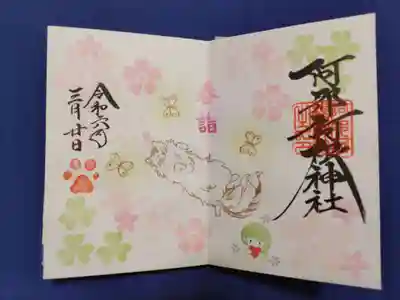 阿邪訶根神社
春詣
令和六年
三月廿日